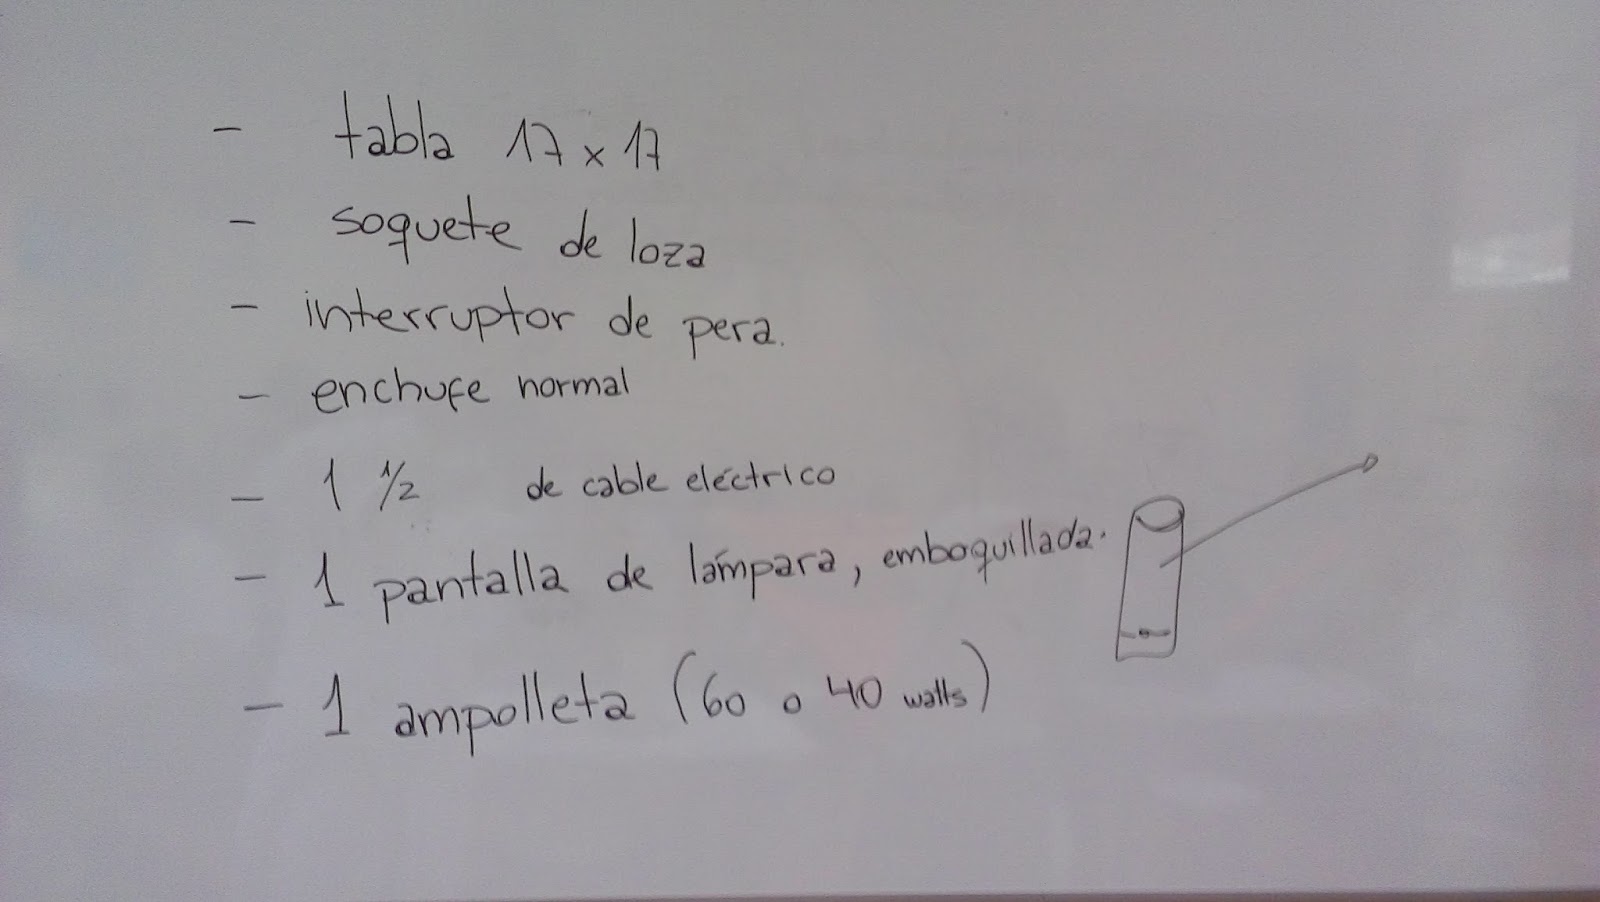 - tabla 17 x 17
- soquete de loza
- interruptor de pera.
- enchufe normal
- 1 1/2 de cable eléctrico
- 1 pantalla de lámpara, emboquillada.
- 1 ampolleta (60 o 40 watts)